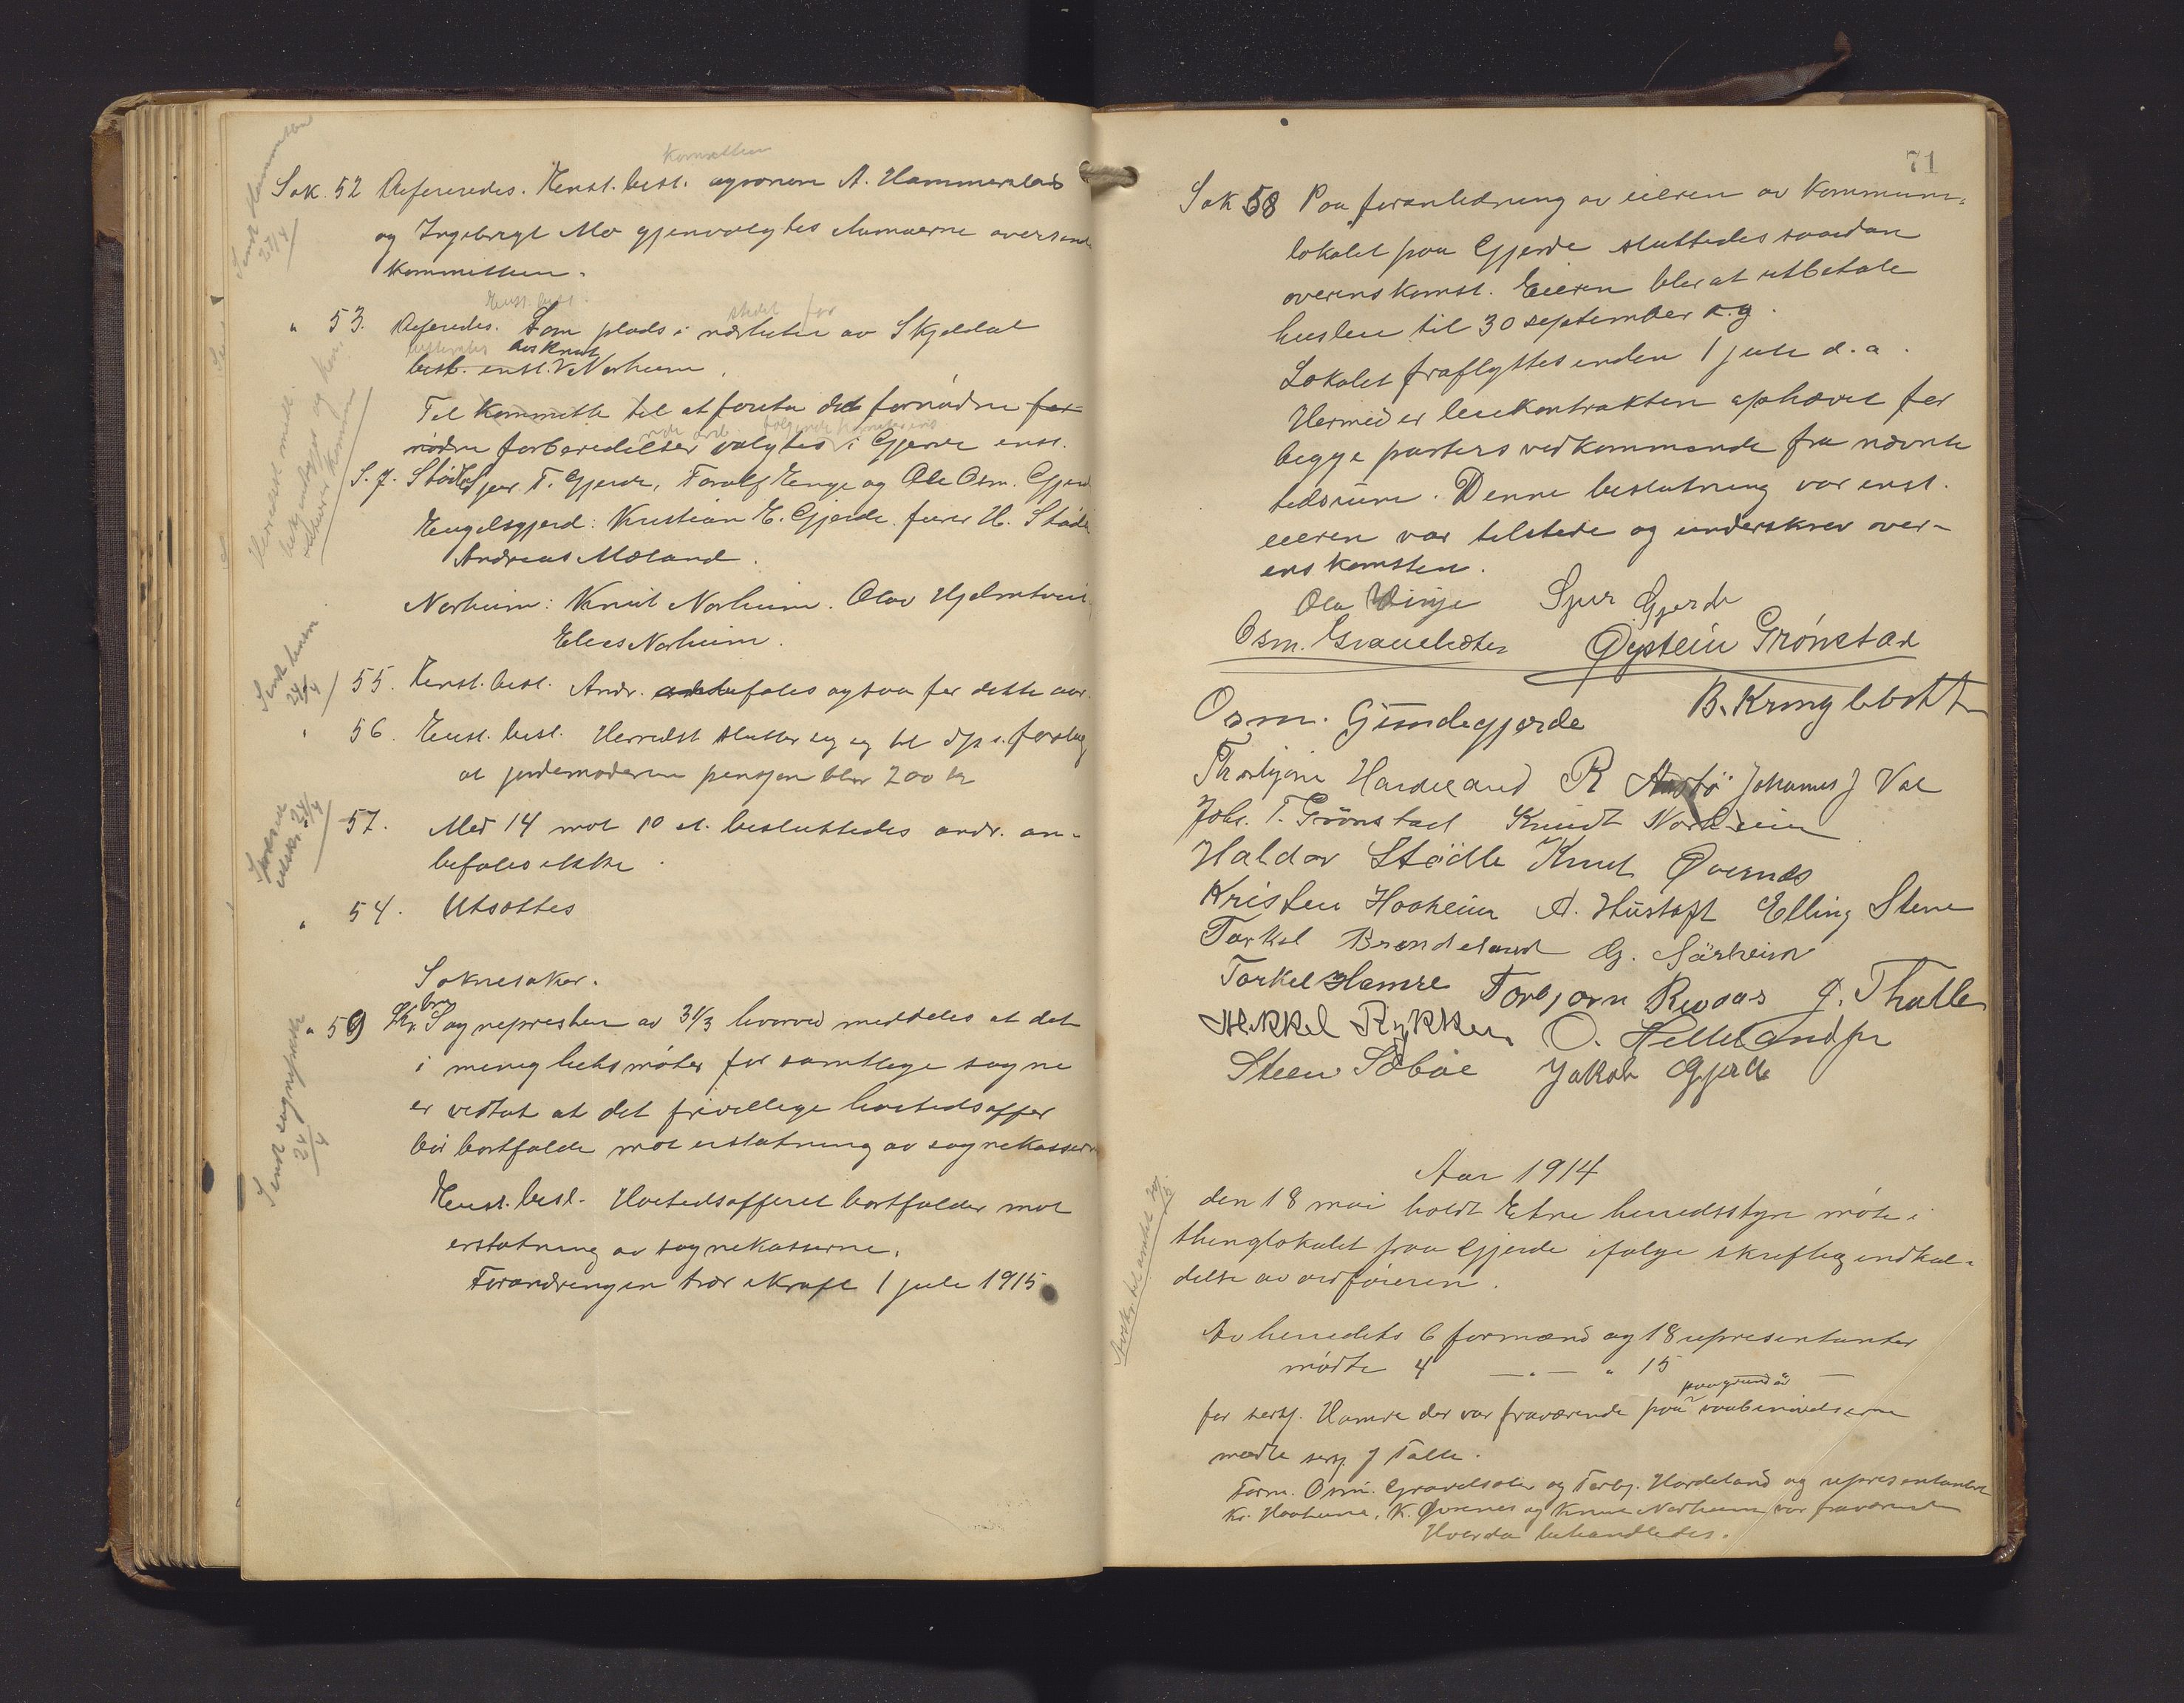 Komitteen
Sak. 52 Refereredes. Eenst. besl. agronom A. Hammersland
og Ingebregt Mo gjenvalgtes
kommitteen.
Enst. besl. stedet for
" 53. Refredes. Som plads i nærheten av Skjeldal
besl. enst. Norheim.
Til kommitte til at foreta de fornødne for-
nødne forberedelser valgtes i Gjerde enst.
S. J. Stødle Sjur T. Gjerde, Toralf Enge og Ole Osm. Gjerde
Engelsgjerd: Kristian E. Gjerde. H. Stødle
Andreas Mæland.
Norheim: Knut Norheim. Olav Hjelmtveit
Elias Norheim.
Sendt 24/4
55. Eenst. besl. Andr. anbefales ogsaa for dette aar.
" 56. Eenst. besl. Herredst slutter sig til dp's forslag
at jordemoderens pensjon blir 200 kr
57. Med 14 mot 10 st. besluttedes andr. an-
befales ikke.
" 54. Utsættes
Soknesaker.
brev
" 59 Skr. Sognepresten av 31/3 hvorved meddeles at det
i menighetsmøter for samtlige sogne
er vedtat at det frivillige høitidsoffer
bør bortfalde mot erstatning av sognekassen
Sendt sognepresten 24/4
Eenst. besl. Høitidsofferet bortfalder mot
erstatning av sognekasserne.
Forandringen trær ikraft 1 juli 1915
71
Sak 58 Paa foranledning av eieren av kommune-
lokalet paa Gjerde sluttedes saadan
overenskomst. Eieren blir at utbetale
husleie til 30 september d. a.
Lokalet fraflyttes inden 1 juli d. a.
Hermed er leiekontrakten ophævet for
begge parters vedkommende fra nævnte
tidsrum. Denne beslutning var enst.
eieren var tilstede og underskrev over-
enskomsten.
Ola Vinje Sjur Gjerde
Osm. Gravelsæter Øystein Grönstad
Osm. Grindegjærde B. Kringlebotn
Thorbjørn Hardeland R Austbö Johannes J Vad
Johs. T. Grönstad Knudt Nordheim
Haldor Stödle Knut Øvernes
Kristen Haaheim A. Hustoft Elling Stene
Torkel Brandeland G. Särheim
Torkel Hamre Torbjørn Revaas J. Thatle
Mikkel Rykken O. Helleland jr
Steen Sæbøe Jakob Gjerde
Aar 1914
den 18 mai holdt Etne herredsstyre møte i
thinglokalet paa Gjerde ifølge skriftlig indkal-
delse av ordføreren.
Av herredets 6 formænd og 18 representanter
mødte 4 — " — " 15 —
paagrund av
for sersj. Hamre der var fraværende paa vaabenøvelserne
mødte sersj. J Tatle.
Form. Osm. Gravelsæter og Torbj. Hardeland og representanterne
Kr. Haaheim, K. Øvernes og Knut Norheim var fraværende
Hvorda behandledes.